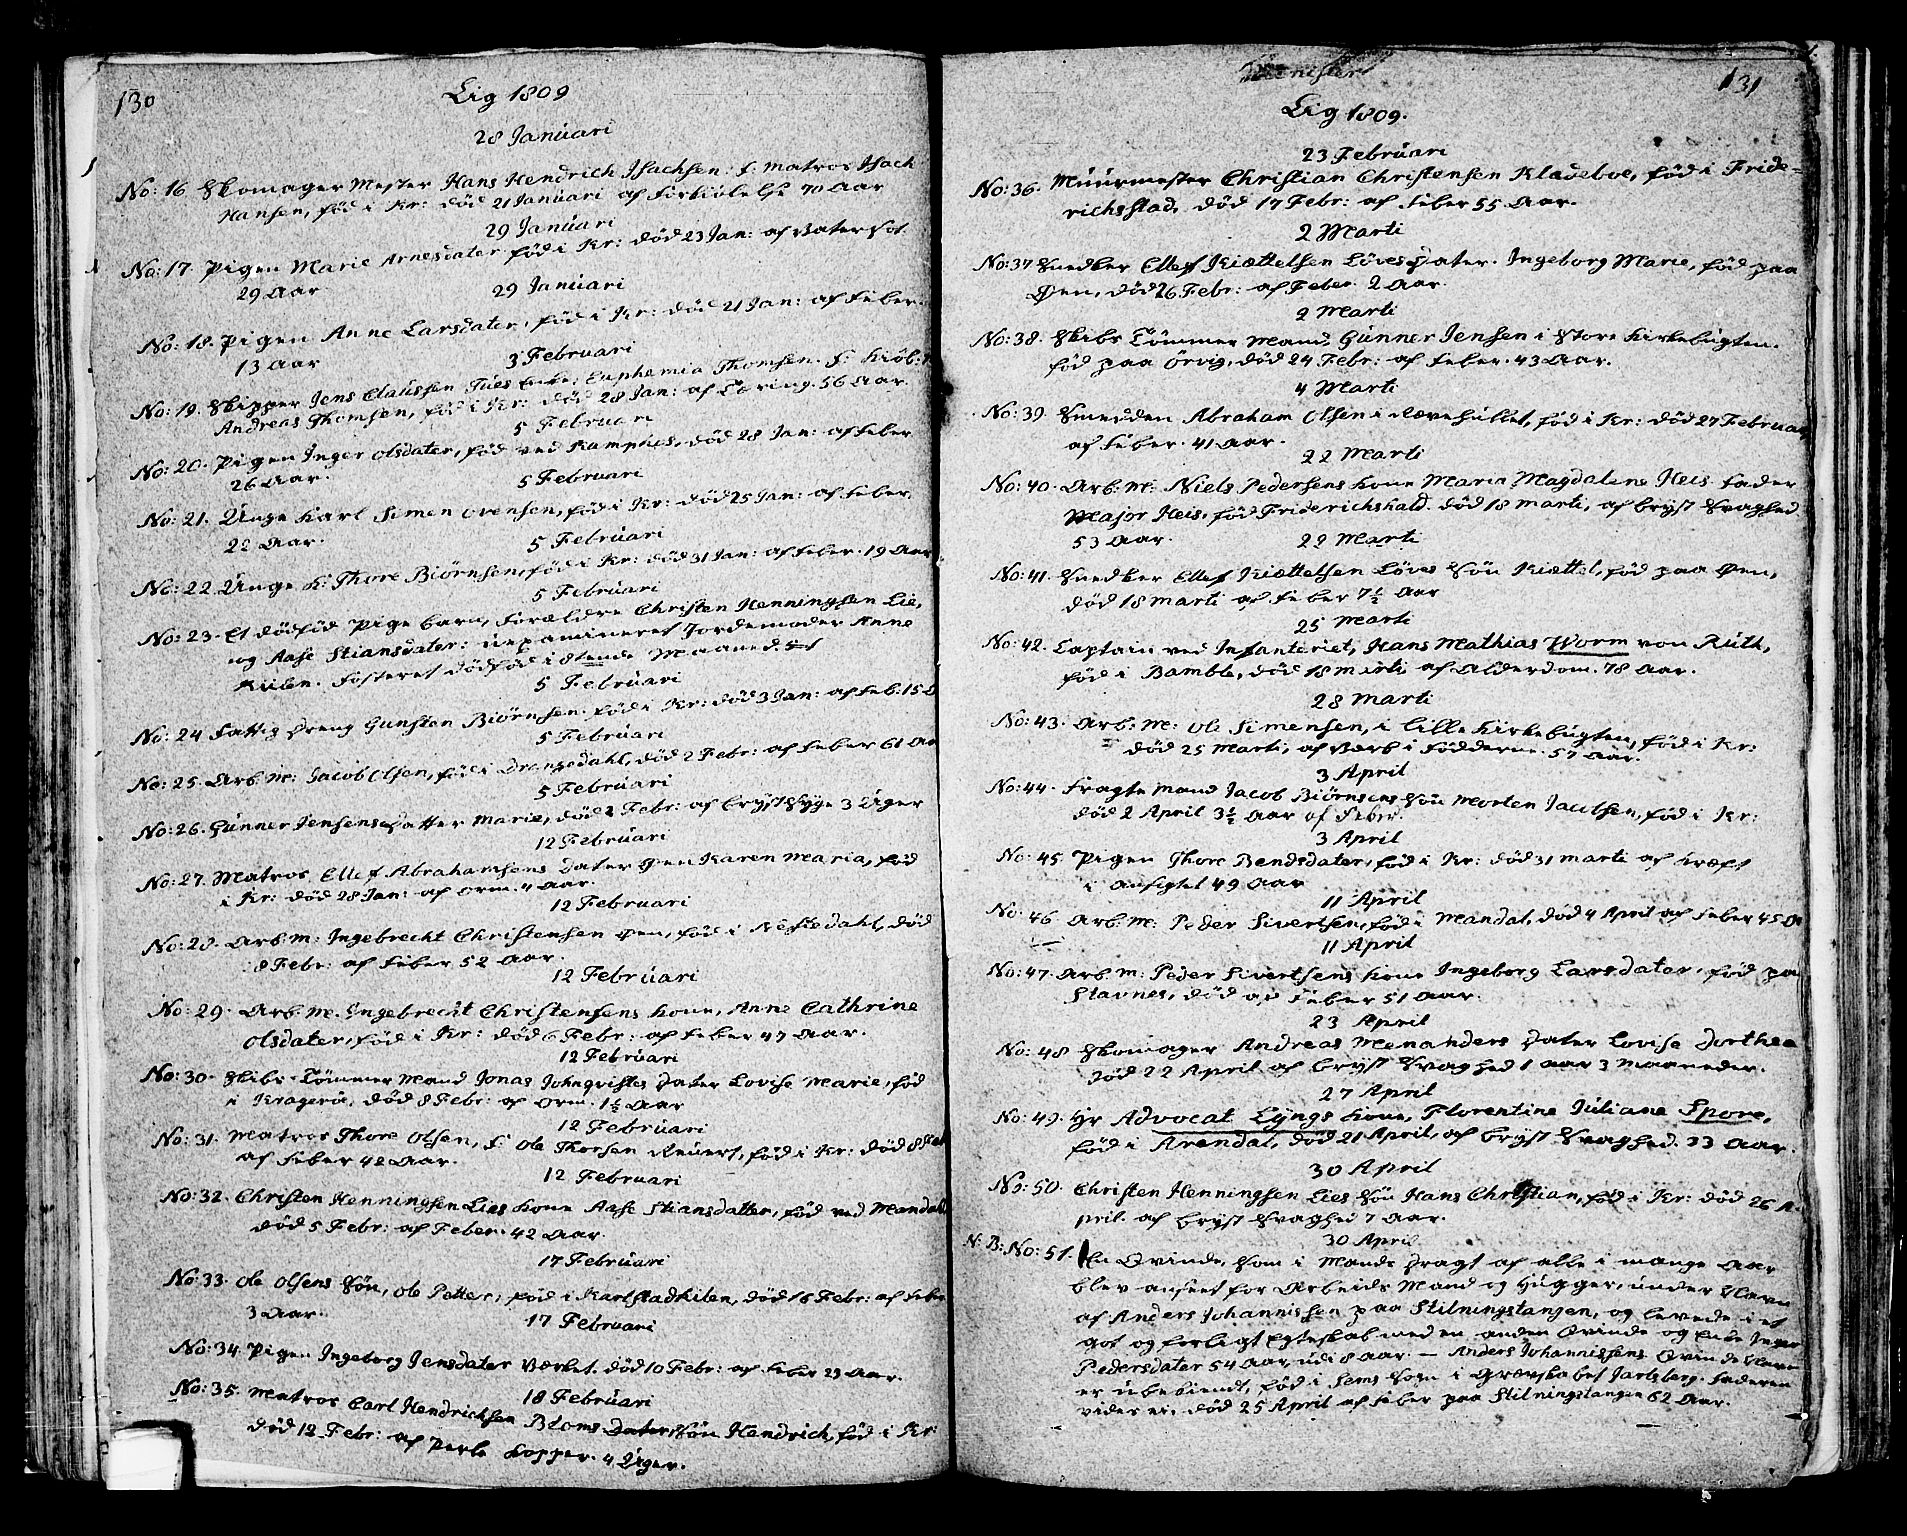 130
Lig 1809
28 Januari
No: 16 Skomager Mester Hans Hendrich Isachsen. f: Matros Isach
Hansen, fød i Kr: død 21 Januari af Forkiølelse 70 Aar
29 Januari
No: 17. Pigen Marie Arnesdater fød i Kr: død 23 Jan: af Vatersot
29 Aar
29 Januari
No: 18. Pigen Anne Larsdater, fød i Kr: død 21 Jan: af Feber.
13 Aar
3 Februari
No: 19. Skipper Jens Claussen Tues Enke, Euphemia Thomsen. f: Kiøb:
Andreas Thomsen, fød i Kr: død 28 Jan: af Tæring. 56 Aar.
5 Februari
No: 20. Pigen Inger Olsdater, fød ved Kamphus, død 28 Jan: af Feber
26 Aar.
5 Februari
No: 21. Unge Karl Simen Orensen, fød i Kr: død 25 Jan: af Feber
22 Aar.
5 Februari
No: 22. Unge K: Thore Biørnsen, fød i Kr: død 31 Jan: af Feber. 19 Aar
5 Februari
No: 23. Et dødfød Pige barn, Forældre Christen Henningsen Lie,
og Aase Stiansdater: uexamineret Jordemoder Anne
Kiilen. Fosteret dødfød i 8tende Maaned.
5 Februari
No: 24 Fattig Dreng Gunsten Biørnsen. fød i Kr: død 3 Jan: af Feb: 15 A
5 Februari
No: 25. Arb: M: Jacob Olsen, fød i Drangedahl, død 2 Febr: af Feber 61 Aar
5 Februari
No: 26. Gunner Jensens Datter Marie, død 2 Febr: af Bryst Syge 3 Uger
12 Februari
No: 27. Matros Ellef Abrahamsens Dater Øen Karen Maria, fød
i Kr: død 28 Jan: af Orm. 4 Aar.
12 Februari
No: 28. Arb: M: Ingebrecht Christensen Øen, fød i Nessedahl, død
8 Febr: af Feber 52 Aar.
12 Februari
No: 29. Arb: M. Ingebrecht Christensens Kone, Anne Cathrine
Olsdater, fød i Kr: død 6 Febr: af Feber 47 Aar.
12 Februari
No: 30. Skibs-Tømmer Mand Jonas Johnqvistes Dater Lovise Marie, fød
i Kragerøe, død 8 Febr: af Orm. 1½ Aar
12 Februari
No: 31. Matros Thore Olsen, f: Ole Thorsen Reuert, fød i Kr: død 8 Feb
af Feber 42 Aar.
12 Februari
No: 32. Christen Henningsen Lies Kone Aase Stiansdatter, fød ved Mandal
død 5 Febr: af Feber. 42 Aar.
17 Februari
No: 33. Ole Olsens Søn, Ole Petter, fød i Karlstadkilen, død 16 Febr: af Feber
3 Aar.
17 Februari
No: 34. Pigen Ingeborg Jensdater Værket. død 10 Febr: af Feber 23 Aar.
18 Februari
No: 35. Matros Carl Hendrichsen Bloms Dater Søn Hendrich, fød i Kr:
død 12 Febr: af Perle Kopper. 4 Uger.
131
Lig 1809.
23 Februari
No: 36. Muurmester Christian Christensen Kladeboe, fød i Fride-
richsstad, død 17 Febr: af Feber 55 Aar.
2 Marti
No: 37 Snedker Ellef Kiættelsen Løves Dater. Ingeborg Marie, fød paa
Øen, død 26 Febr: af Feber. 2 Aar.
2 Marti
No: 38. Skibs Tømmer Mand Gunner Jensen i Store Kirkebugten.
fød paa Ørvig, død 24 Febr: af Feber. 43 Aar.
4 Marti
No: 39. Smedden Abraham Olsen i Rævehullet, fød i Kr: død 27 Februari
af Feber. 41 Aar.
22 Marti
No: 40. Arb: M: Niels Pedersens Kone Maria Magdalena Heis. Fader
Major Heis, fød Friderichshald. død 18 Marti, af Bryst Svaghed
53 Aar.
22 Marti
No: 41. Snedker Ellef Kiættelsen Løves Søn Kiættel, fød paa Øen,
død 18 Marti af Feber 7½ Aar
25 Marti
No: 42. Captain ved Infanteriet, Hans Mathias Worm von Ruth,
fød i Bamble, død 18 Marti af Alderdom. 78 Aar.
28 Marti
No: 43. Arb: M: Ole Simensen, i Lille Kirkebugten, fød i Kr:
død 25 Marti, af Værk i Fødderne. 57 Aar.
3 April
No: 44. Fragte Mand Jacob Biørnsens Søn Morten Jacobsen, fød i Kr:
død 2 April 3½ Aar af Feber.
3 April
No: 45. Pigen Thore Bendsdater, fød i Kr: død 31 Marti af Kræft
i Ansigtet 49 Aar
11 April
No: 46 Arb: M: Peder Sivertsen, fød i Mandal, død 4 April af Feber 45 A
11 April
No: 47. Arb: M: Peder Sivertsens Kone Ingeborg Larsdater, fød paa
Stavnes, død af Feber 51 Aar.
23 April
No: 48 Skomager Andreas Menanders Dater Lovise Dorthea
død 22 April af Bryst Svaghed 1 Aar 3 Maaneder.
27 April
No: 49. Hr Advocat Lyngs Kone, Florentine Juliane Spore,
fød i Arendal, død 21 April, af Bryst Svaghed. 33 Aar.
30 April
No: 50. Christen Henningsen Lies Søn Hans Christian, fød i Kr: død 26 A-
pril. af Bryst Svaghed 7 Aar.
30 April
N: B: No: 51. En Qvinde, som i Mands Dragt af alle i mange Aar
blev anseet for Arbeids Mand og Hugger, under Navn
af Anders Johannissen paa Stilningstangen, og levede i et
got og forligt Egteskab med en anden Qvinde og Enke Inger
Pedersdater 54 Aar, udi 8 Aar. — Anders Johannissens Qvinde Navn
er ubekiendt, fød i Sems Sogn i Grevskabet Jarlsberg. Faderen
vides ei. død 25 April af Feber paa Stilningstangen 62 Aar.